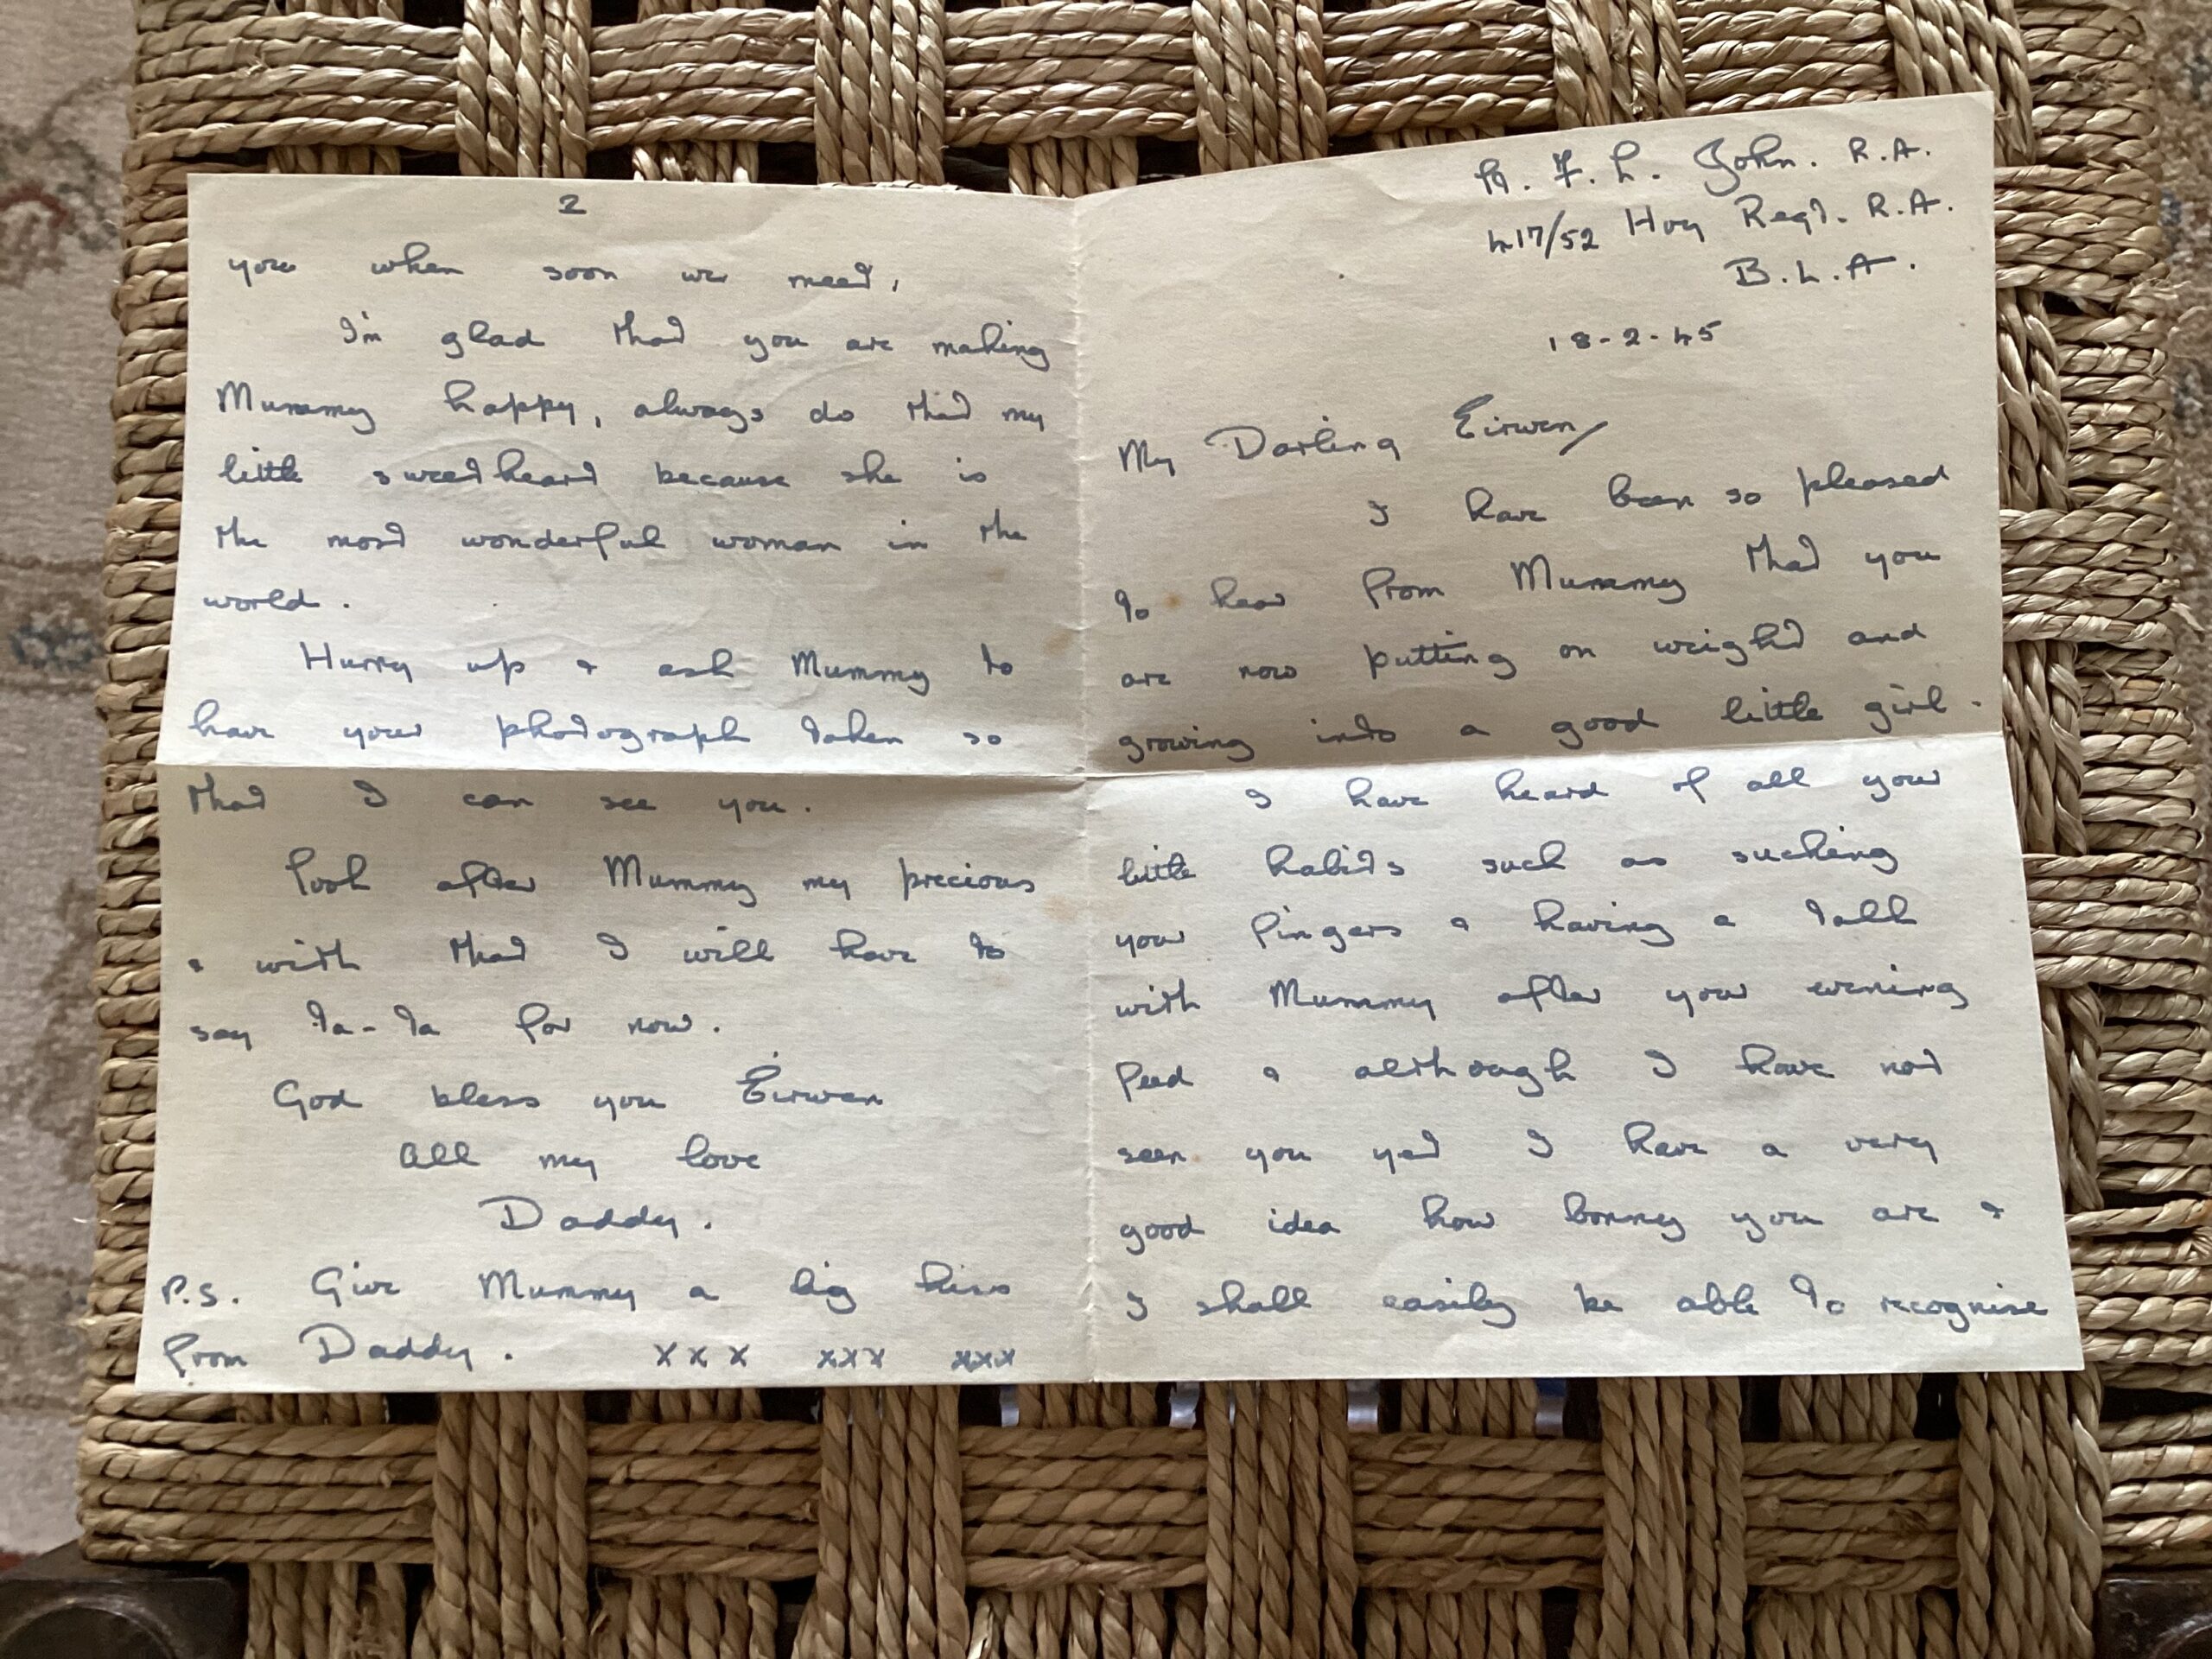 R. F. L. John. R.A.
417/52 Hvy Regt. R.A.
B.L.A.
18-2-45
My Darling Eirwen,
I have been so pleased
to hear from Mummy that you
are now putting on weight and
growing into a good little girl.
I have heard of all your
little habits such as sucking
your fingers & having a talk
with Mummy after your evening
feed & although I have not
seen you yet I have a very
good idea how bonny you are &
I shall easily be able to recognise
2
you when soon we meet,
I'm glad that you are making
Mummy happy, always do that my
little sweetheart because she is
the most wonderful woman in the
world.
Hurry up & ask Mummy to
have your photograph taken so
that I can see you.
Look after Mummy my precious
& with that I will have to
say ta-ta for now.
God bless you Eirwen
All my love
Daddy.
P.S. Give Mummy a big kiss
from Daddy. xxx xxx xxx